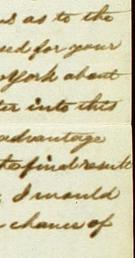 us as to the
sed for your
York about
ter into this
advantage
the final result
I would
chance of